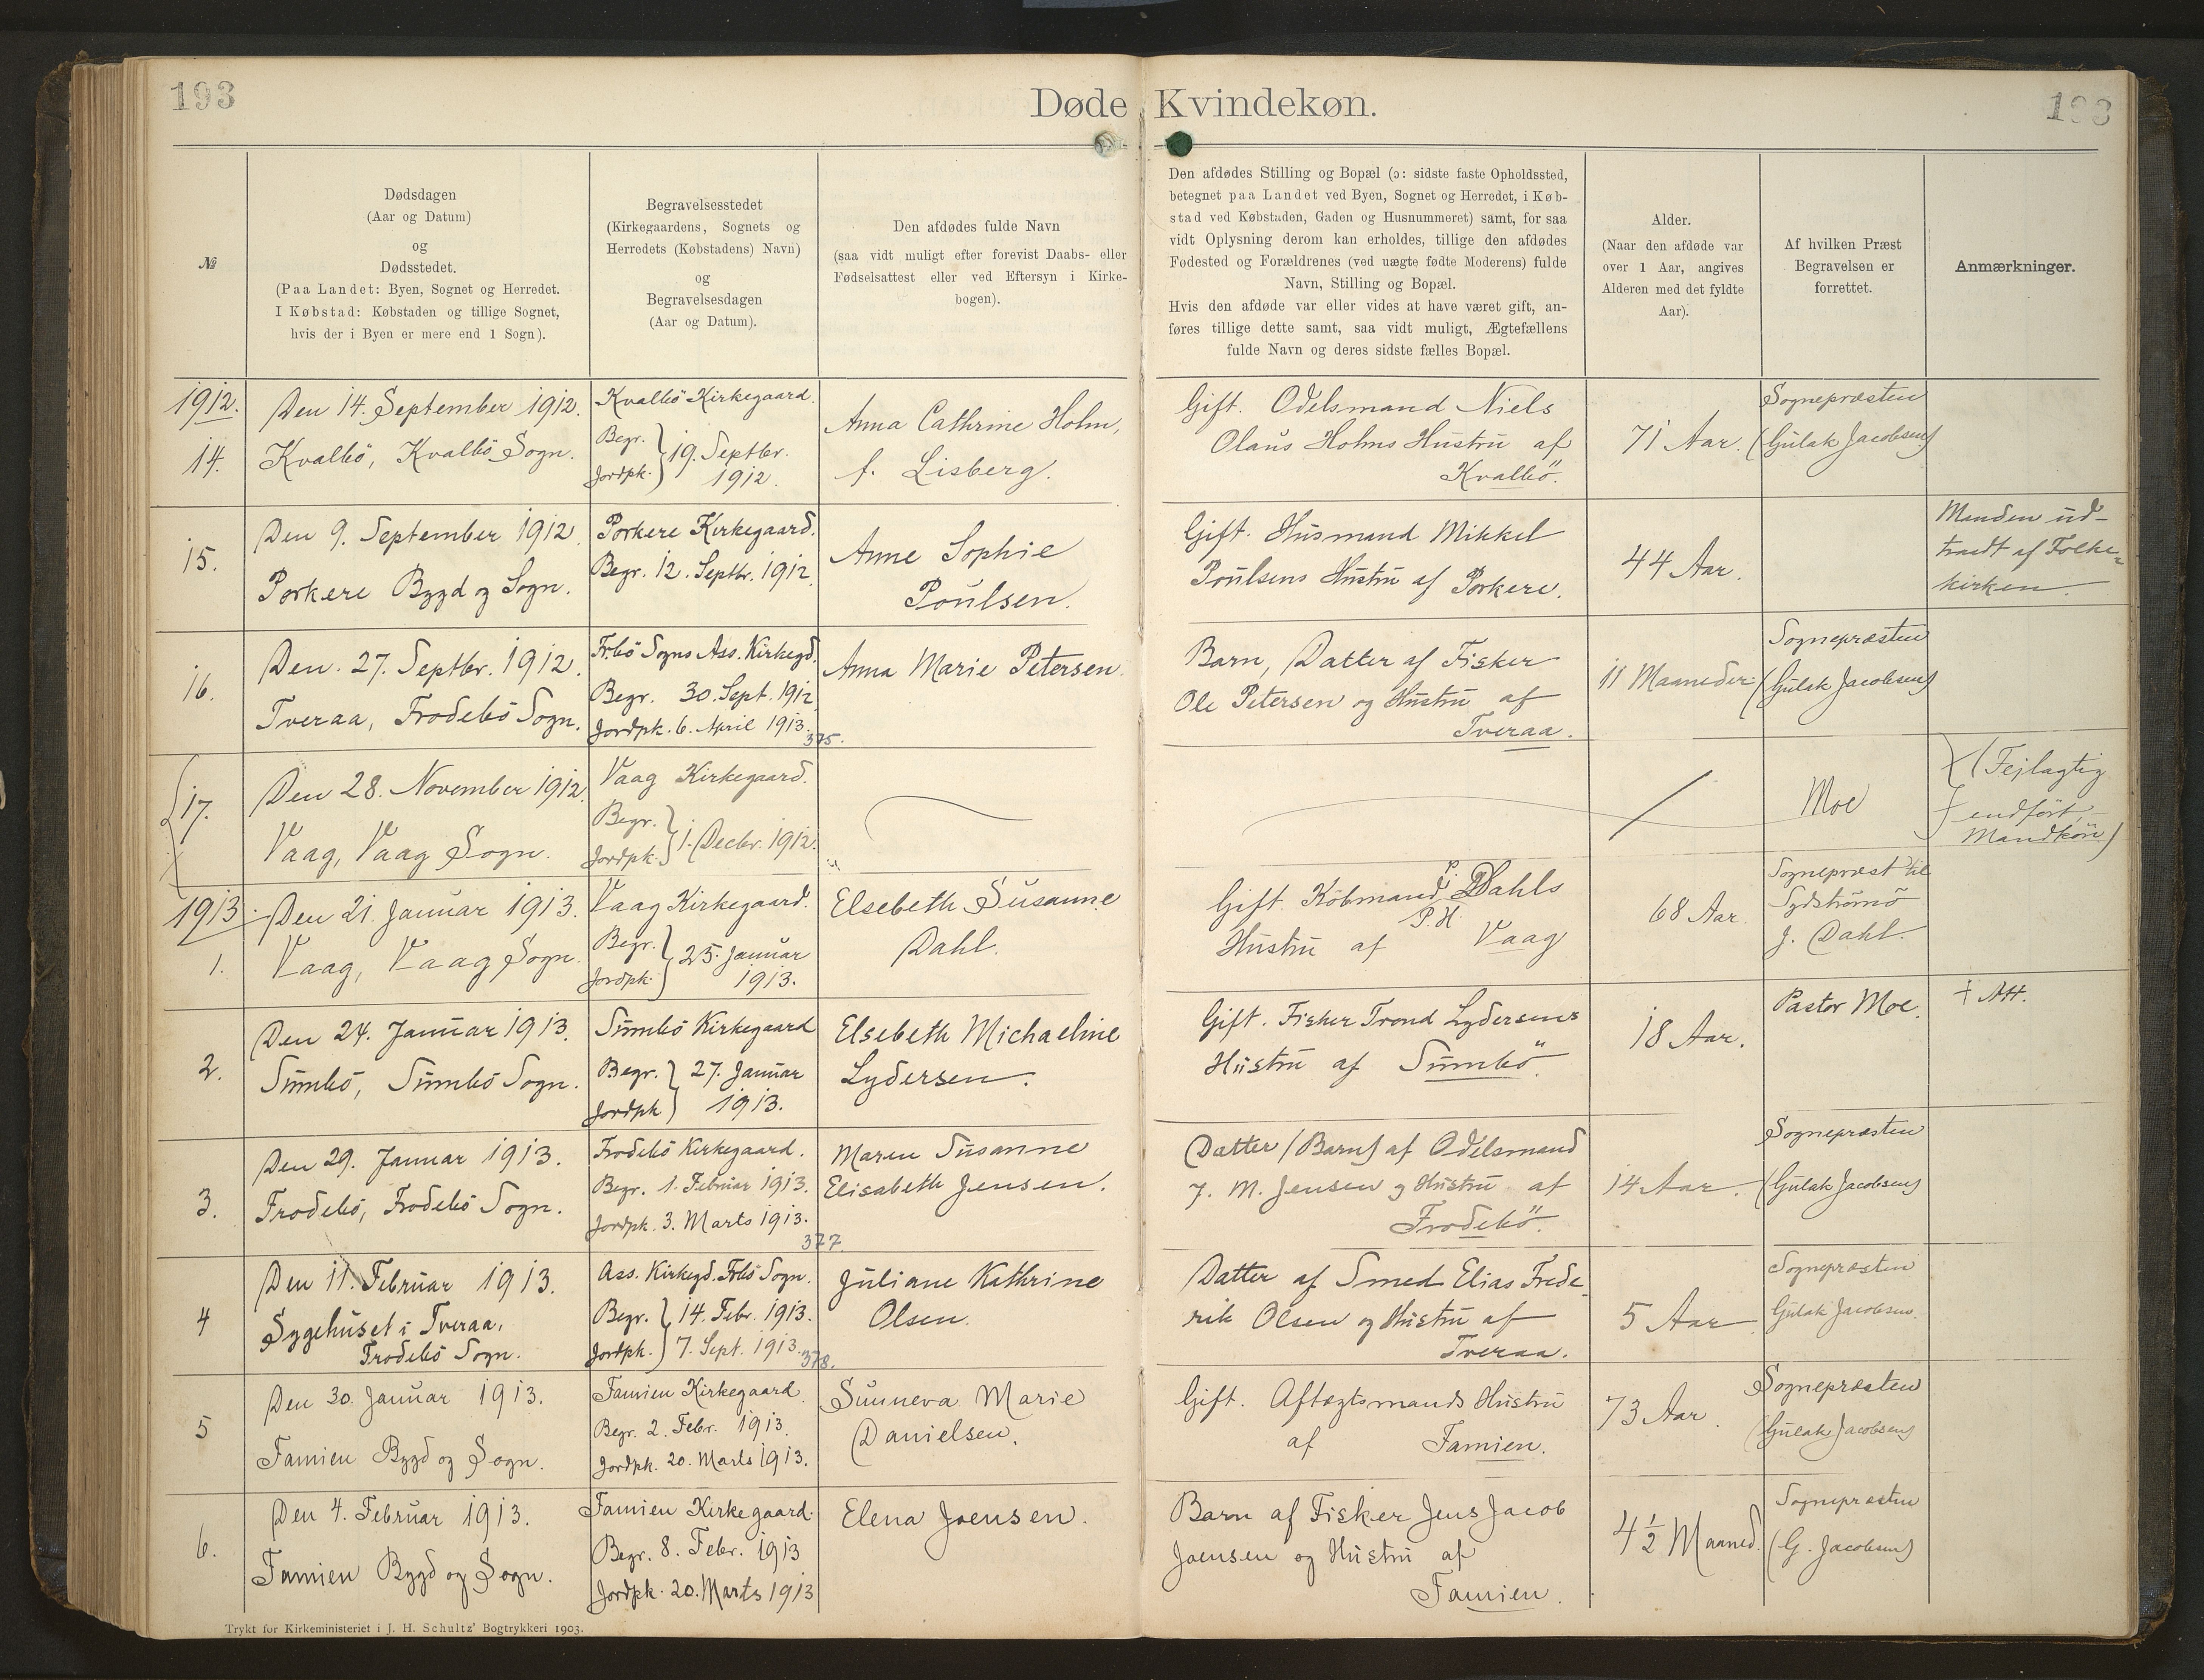 193
Døde Kvindekøn.
193
№
Dødsdagen
(Aar og Datum)
og
Dødsstedet.
(Paa Landet: Byen, Sognet og Herredet.
I Købstad: Købstaden og tillige Sognet,
hvis der i Byen er mere end 1 Sogn).
Begravelsesstedet
(Kirkegaardens, Sognets og
Herredets (Købstadens) Navn)
og
Begravelsesdagen
(Aar og Datum).
Den afdødes fulde Navn
(saa vidt muligt efter forevist Daabs- eller
Fødselsattest eller ved Eftersyn i Kirke-
bogen).
Den afdødes Stilling og Bopæl (ɔ: sidste faste Opholdssted,
betegnet paa Landet ved Byen, Sognet og Herredet, i Køb-
stad ved Købstaden, Gaden og Husnummeret) samt, for saa
vidt Oplysning derom kan erholdes, tillige den afdødes
Fødested og Forældrenes (ved uægte fødte Moderens) fulde
Navn, Stilling og Bopæl.
Hvis den afdøde var eller vides at have været gift, an-
føres tillige dette samt, saa vidt muligt, Ægtefællens
fulde Navn og deres sidste fælles Bopæl.
Alder.
(Naar den afdøde var
over 1 Aar, angives
Alderen med det fyldte
Aar).
Af hvilken Præst
Begravelsen er
forrettet.
Anmærkninger.
1912.
14.
Den 14. September 1912.
Kvalbö, Kvalbö Sogn.
Kvalbö Kirkegaard.
Begr.
Jordpk. } 19. Septbr.
1912.
Anna Cathrine Holm,
f. Lisberg.
Gift. Odelsmand Niels
Olaus Holms Hustru af
Kvalbö.
71 Aar.
Sognepræsten
(Gulak Jacobsen)
15.
Den 9. September 1912.
Porkere Bygd og Sogn.
Porkere Kirkegaard.
Begr. 12. Septbr. 1912.
Anne Sophie
Poulsen.
Gift. Husmand Mikkel
Poulsens Hustru af Porkere.
44 Aar.
Manden ud-
traadt af Folke-
kirken
16.
Den. 27. Septbr. 1912.
Tveraa, Frodebö Sogn.
Frbö Sogns Ass. Kirkegd.
Begr. 30. Sept. 1912
Jordpk. 6. April 1913.
375.
Anna Marie Petersen.
Barn, Datter af Fisker
Ole Petersen og Hustru af
Tveraa.
11 Maaneder
Sognepræsten
(Gulak Jacobsen)
17.
Den 28. November 1912.
Vaag, Vaag Sogn.
Vaag Kirkegaard.
Begr.
Jordpk. } 1. Decbr. 1912.
Moe
(Fejlagtig
endfört,
Mandkön)
1913.
1.
Den 21. Januar 1913.
Vaag, Vaag Sogn.
Vaag Kirkegaard.
Begr.
Jordpk. } 25. Januar
1913.
Elsebeth Susanne
Dahl.
Gift. Köbmand Dahls
P. H
Hustru af Vaag
68 Aar.
Sognepræst til
Sydströmö
J. Dahl.
2.
Den 24. Januar 1913.
Sumbö, Sumbö Sogn.
Sumbö Kirkegaard
Begr.
Jordpk } 27. Januar
1913.
Elsebeth Michaeline
Lydersen.
Gift. Fisker Trond Lydersens
Hustru af Sumbö.
18 Aar.
Pastor Moe.
3.
Den 29. Januar 1913.
Frodebö, Frodebö Sogn.
Frodebö Kirkegaard.
Begr. 1. Februar 1913.
Jordpk. 3. Marts 1913.
377.
Maren Susanne
Elisabeth Jensen.
Datter (Barn) af Odelsmand
J. M. Jensen og Hustru af
Frodebö.
14 Aar.
Sognepræsten
(Gulak Jacobsen)
4
Den 11. Februar 1913.
Sygehuset i Tveraa,
Frodebö Sogn.
Ass. Kirkegd. Frbö Sogn.
Begr. } 14. Febr. 1913.
Jordpk. } 7. Sept. 1913.
378.
Juliane Kathrine
Olsen.
Datter af Smed Elias Frede-
rik Olsen og Hustru af
Tveraa.
5 Aar
Sognepræsten
Gulak Jacobsen.
5
Den 30. Januar 1913.
Famien Bygd og Sogn.
Famien Kirkegaard
Begr. 2. Febr. 1913.
Jordpk. 20. Marts 1913.
Sunneva Marie
Danielsen.
Gift. Aftægtsmands Hustru
af Famien.
73 Aar.
Sognepræsten
(Gulak Jacobsen)
6.
Den 4. Februar 1913.
Famien Bygd og Sogn.
Famien Kirkegaard.
Begr. 8. Febr. 1913
Jordpk. 20. Marts 1913
Elena Joensen.
Barn af Fisker Jens Jacob
Joensen og Hustru af
Famien.
4 ½ Maaned.
Sognepræsten
(G. Jacobsen)
Trykt for Kirkeministeriet i J. H. Schultz' Bogtrykkeri 1903.